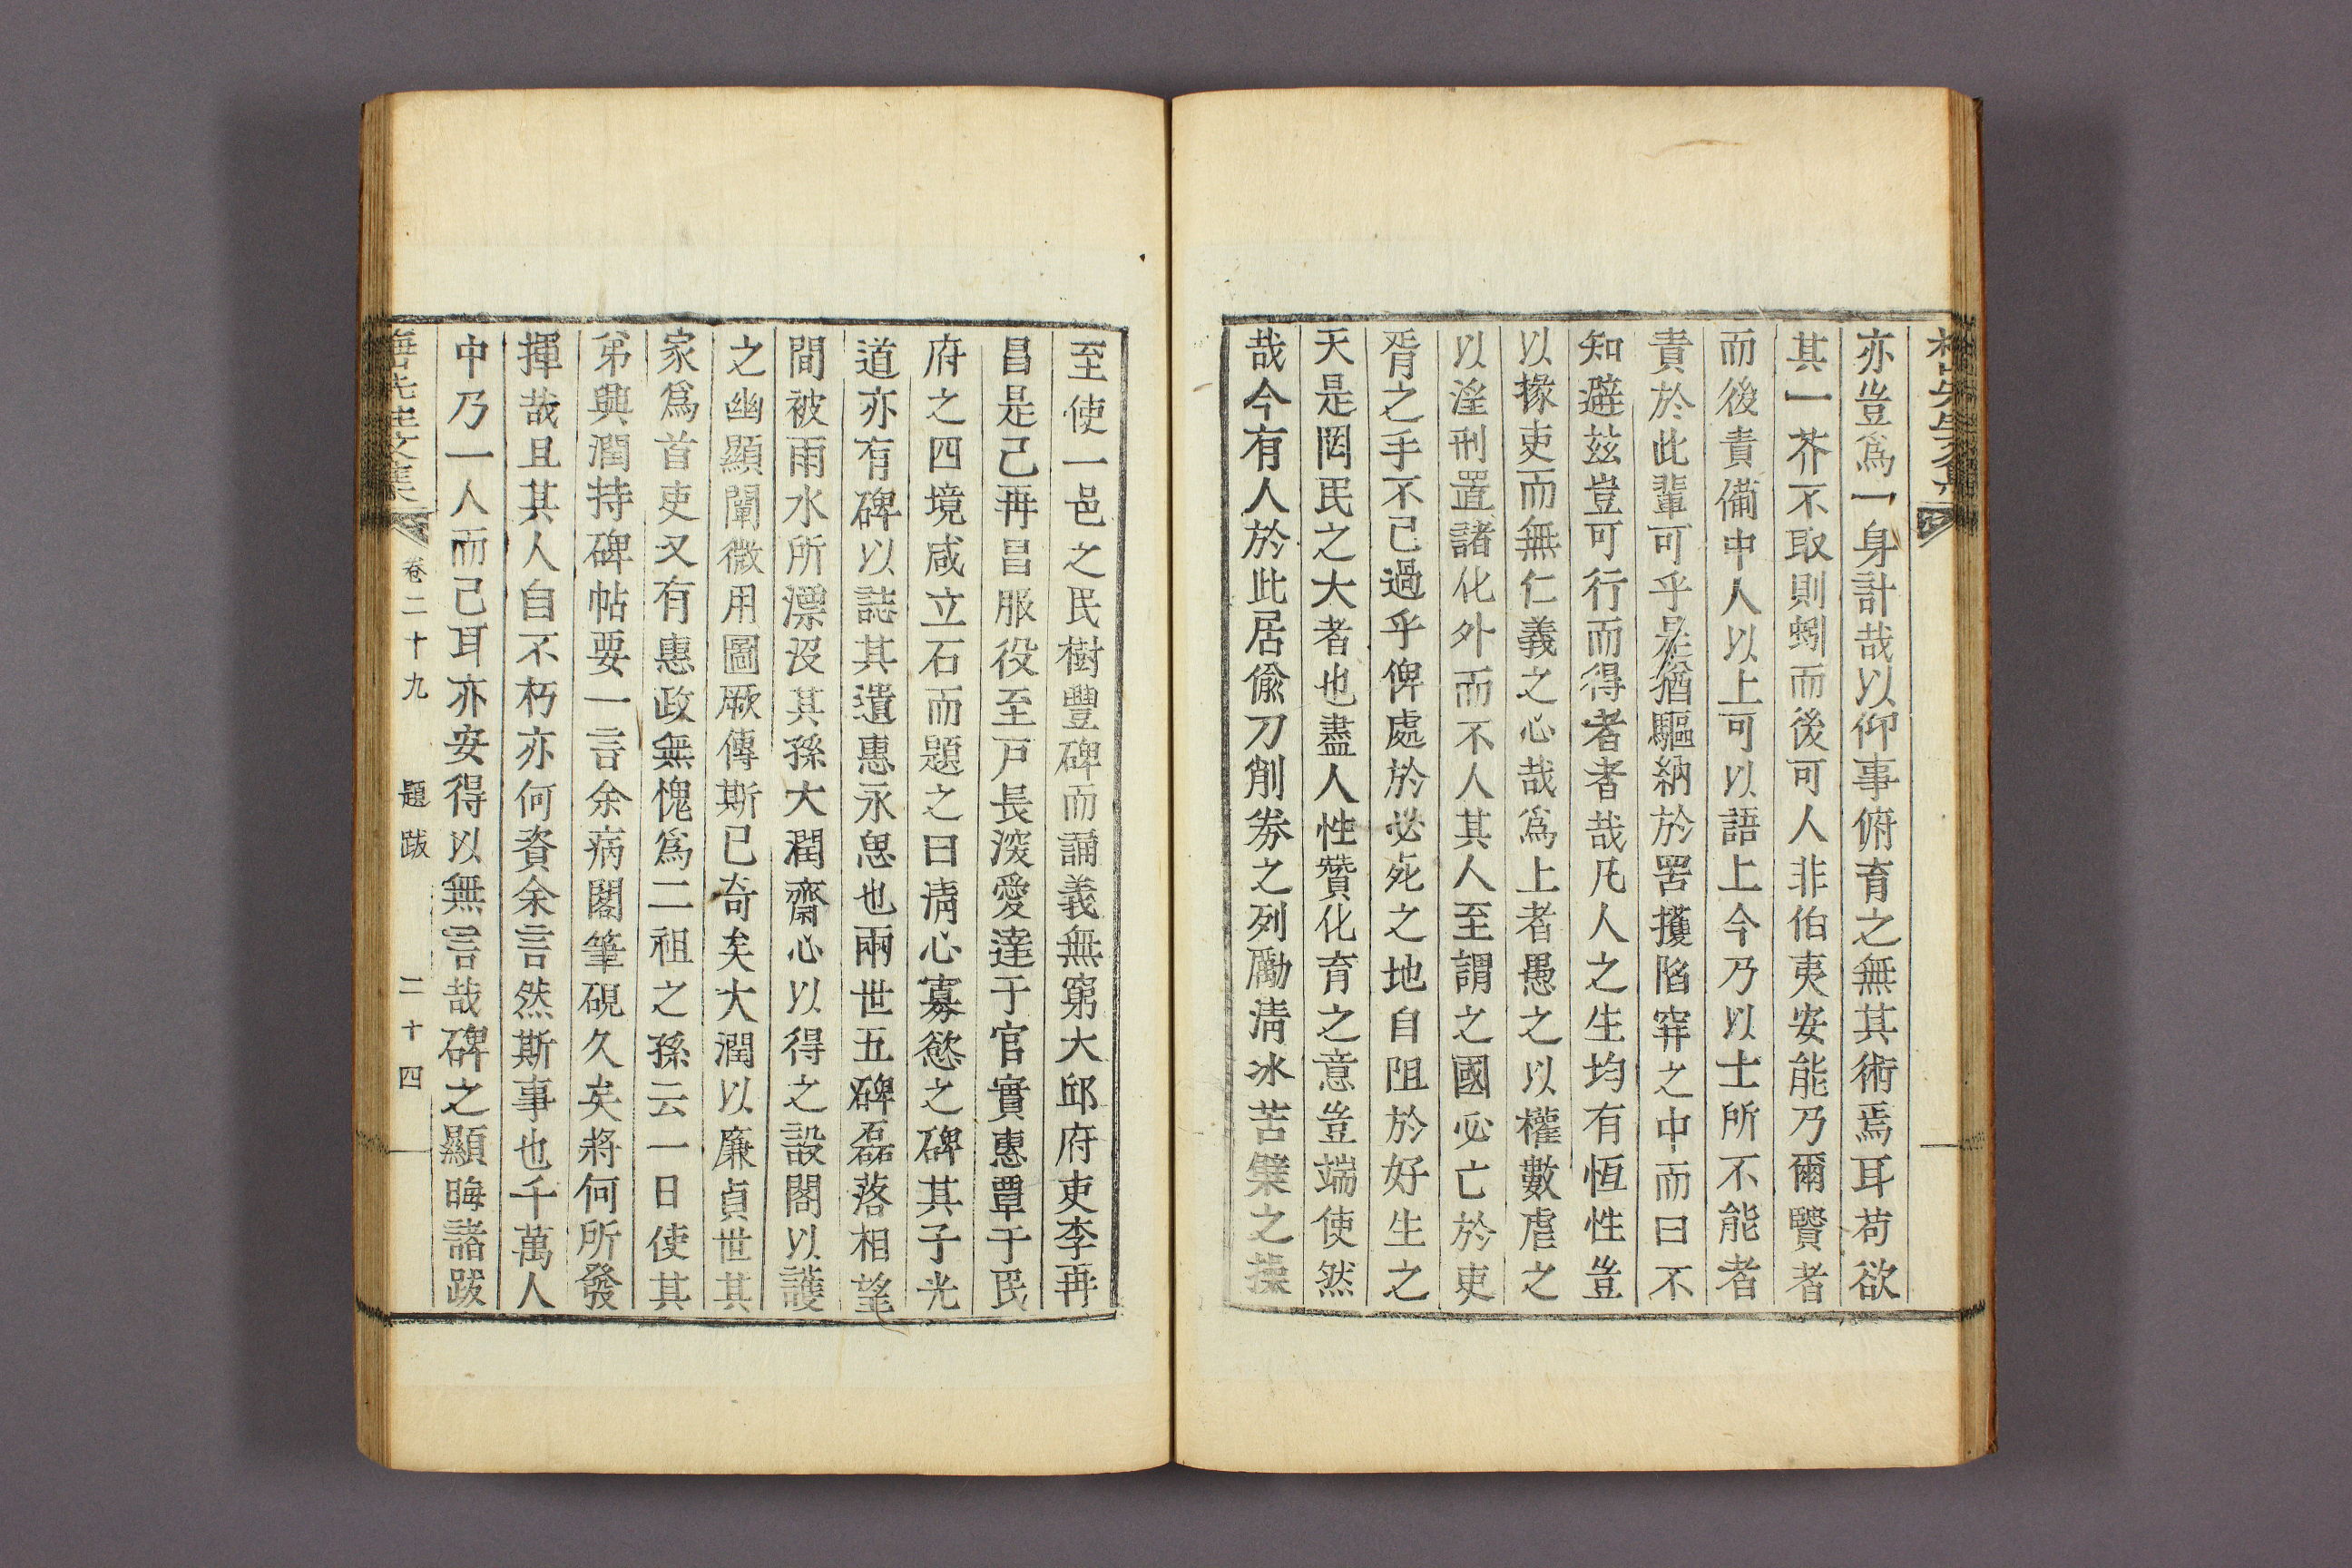 亦豈爲一身計哉以仰事俯育之無其術焉耳苟欲
其一芥不取則蚓而後可人非伯夷安能乃爾賢者
而後責備中人以上可以語上今乃以士所不能者
責於此輩可乎是猶驅納於罟擭陷穽之中而曰不
知避玆豈可行而得者者哉凡人之生均有恒性豈
以掾吏而無仁義之心哉爲上者愚之以權數虐之
以淫刑置諸化外而不人其人至謂之國必亡於吏
胥之手不已過乎俾處於必死之地自阻於好生之
天是罔民之大者也盡人性贊化育之意豈端使然
哉今有人於此居偸刀削券之列勵淸冰苦檗之操
至使一邑之民樹豐碑而誦義無窮大邱府吏李再
昌是已再昌服役至戶長深愛達于官實惠覃于民
府之四境咸立石而題之曰淸心寡慾之碑其子光
道亦有碑以誌其遺惠永思也兩世五碑磊落相望
間被雨水所漂沒其孫大潤齋心以得之設閣以護
之幽顯闡微用圖厥傳斯已奇矣大潤以廉貞世其
家爲首吏又有惠政無愧爲二祖之孫云一日使其
弟興潤持碑帖要一言余病閣筆硯久矣將何所發
揮哉且其人自不朽亦何資余言然斯事也千萬人
中乃一人而已耳亦安得以無言哉碑之顯晦諸跋
先生文集 卷二十九 題跋 二十四